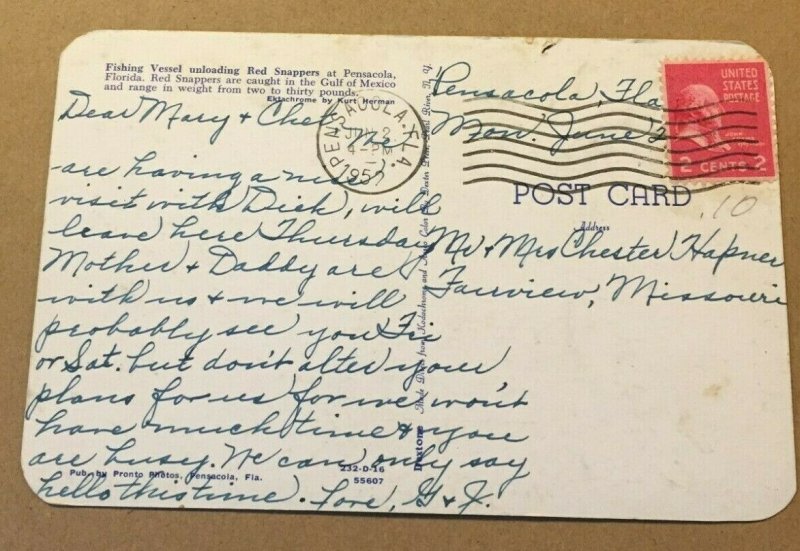 Fishing Vessel unloading Red Snappers at Pensacola,
Florida. Red Snappers are caught in the Gulf of Mexico
and range in weight from two to thirty pounds.
Ektachrome by Kurt Herman
Dear Mary & Chet, We
are having a nice
visit with Dick, will
leave here Thursday.
Mother & Daddy are
with us & we will
probably see you Fri
or Sat. but don't alter your
plans for us for we won't
have much time & you
are busy. We can only say
hello this time. Love, G & J.
Pub. by Pronto Photos, Pensacola, Fla.
232-D-16
55607
PENSACOLA, FLA.
2
4-PM
1957
Dextone Made Direct from Kodachrome and Color by Dexter Press, West River, N. Y.
Pensacola, Fla
Mon. June 2
UNITED
STATES
POSTAGE
JOHN
2 CENTS 2
POST CARD
Address
.10
Mr & Mrs Chester Hapner
Fairview, Missouri